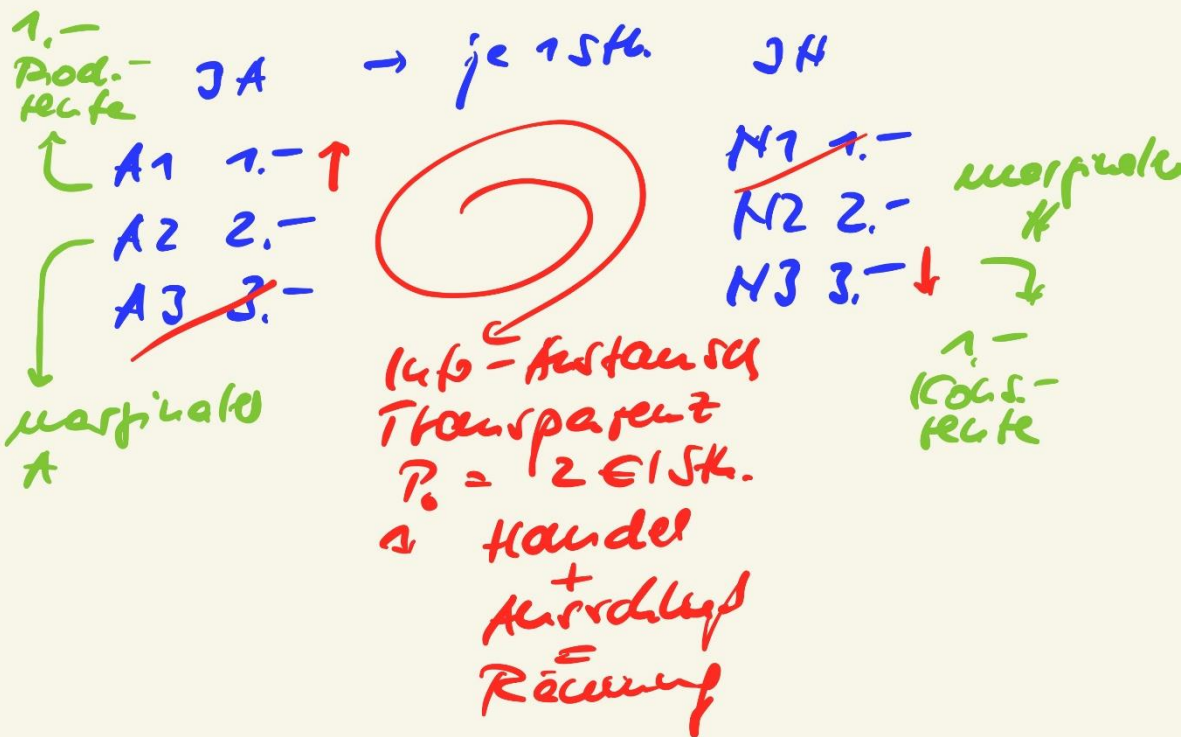 1.-
Prod.-
rente
3 A → je 1 Stk. 3 N
A1 1.- ↑
A2 2.-
A3 3.-
N1 1.-
N2 2.-
N3 3.- ↓
marginaler
A
marginaler
N
1.-
Kons.-
rente
Info-Austausch
Transparenz
P₀ = 2 €/Stk.
Handel
+
Ausschluß
=
Räumung